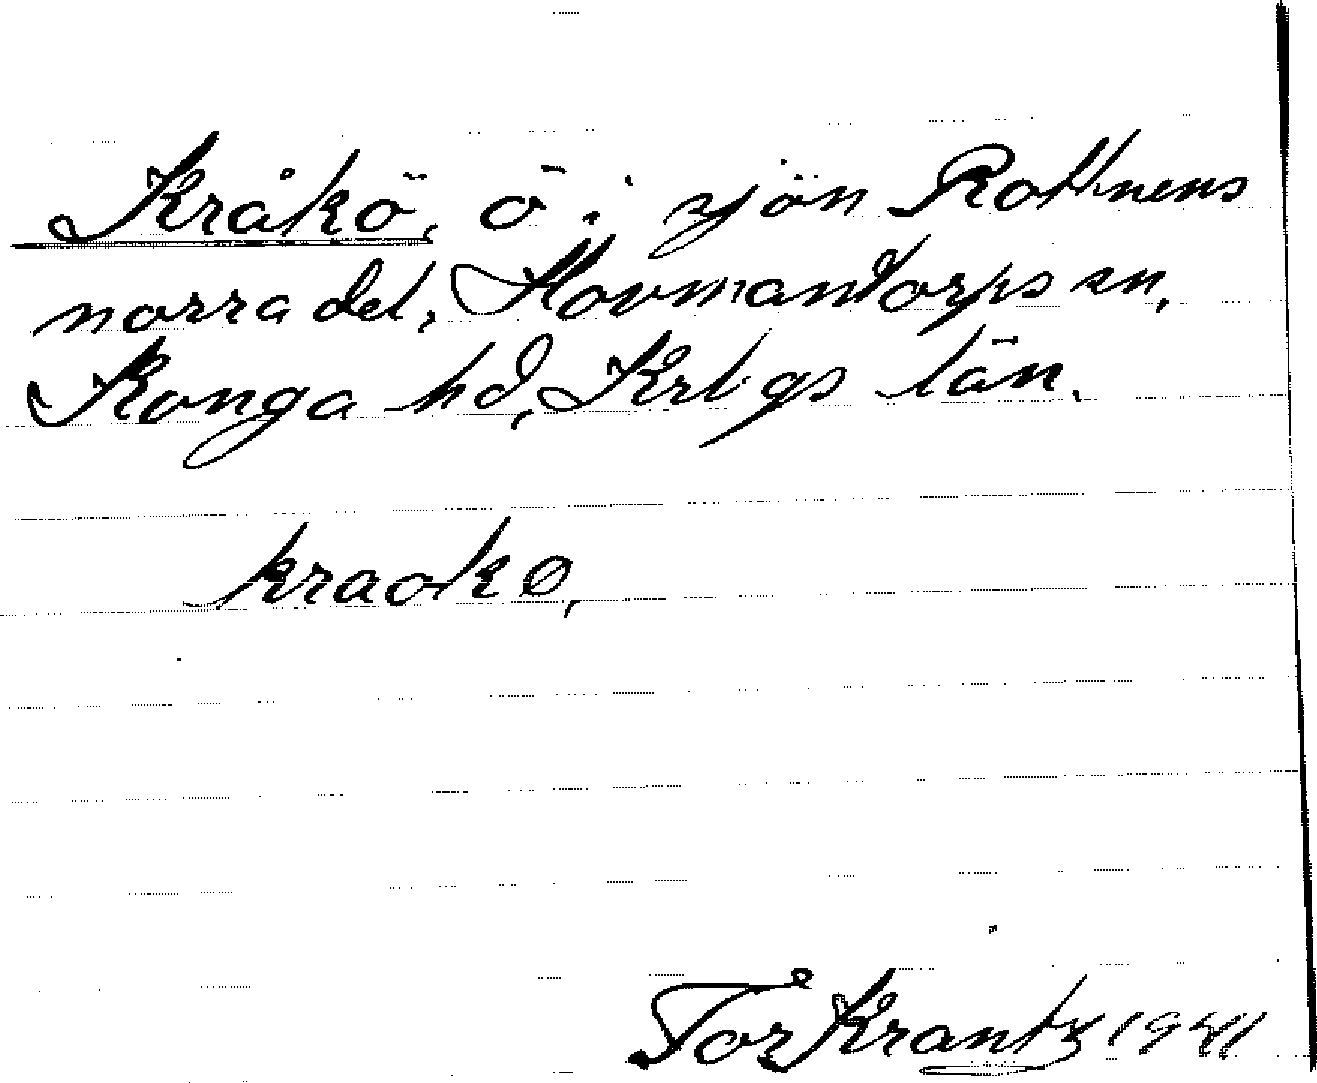 Kråkö, ö i sjön Rottnens
norra del, Hovmantorps sn,
Konga hd, Krbgs län.
kraokø,
Tor Krantz 1941